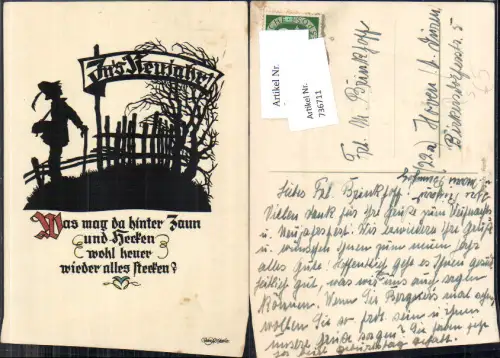 In's Neujahr!
Was mag da hinter Zaun
und Hecken
wohl heuer
wieder alles stecken?
Artikel Nr.
Artikel Nr.
736711
Frl. M. Brinkhoff
(22a)
Liebes Frl. Brinkhoff
Vielen Dank für Ihre Grüße zum Weihnachts-
u. Neujahrsfest. Wir erwidern Ihre Grüße
u. wünschen Ihnen zum neuen Jahr
alles Gute! Hoffentlich geht es Ihnen gesund-
heitlich gut, was wir uns auch sagen
können. Wenn Sie Bergners mal sehen,
wollten Sie so frdl. sein u ihnen
unsere Grüße sagen?